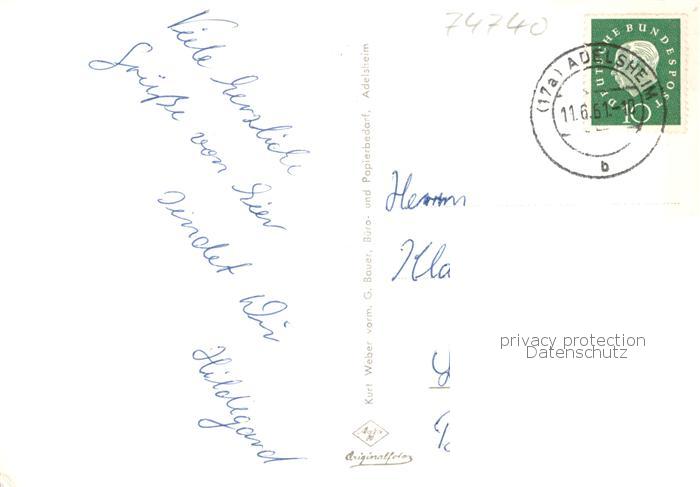 Viele herzliche
Grüße von hier
sendet Dir
Hildegard
Kurt Weber vorm. G. Bauer, Büro- und Papierbedarf, Adelsheim
Originalfoto
74740
DEUTSCHE BUNDESPOST
10
(17a) ADELSHEIM
11.6.61.-10
b
Herrn
Kla
privacy protection
Datenschutz